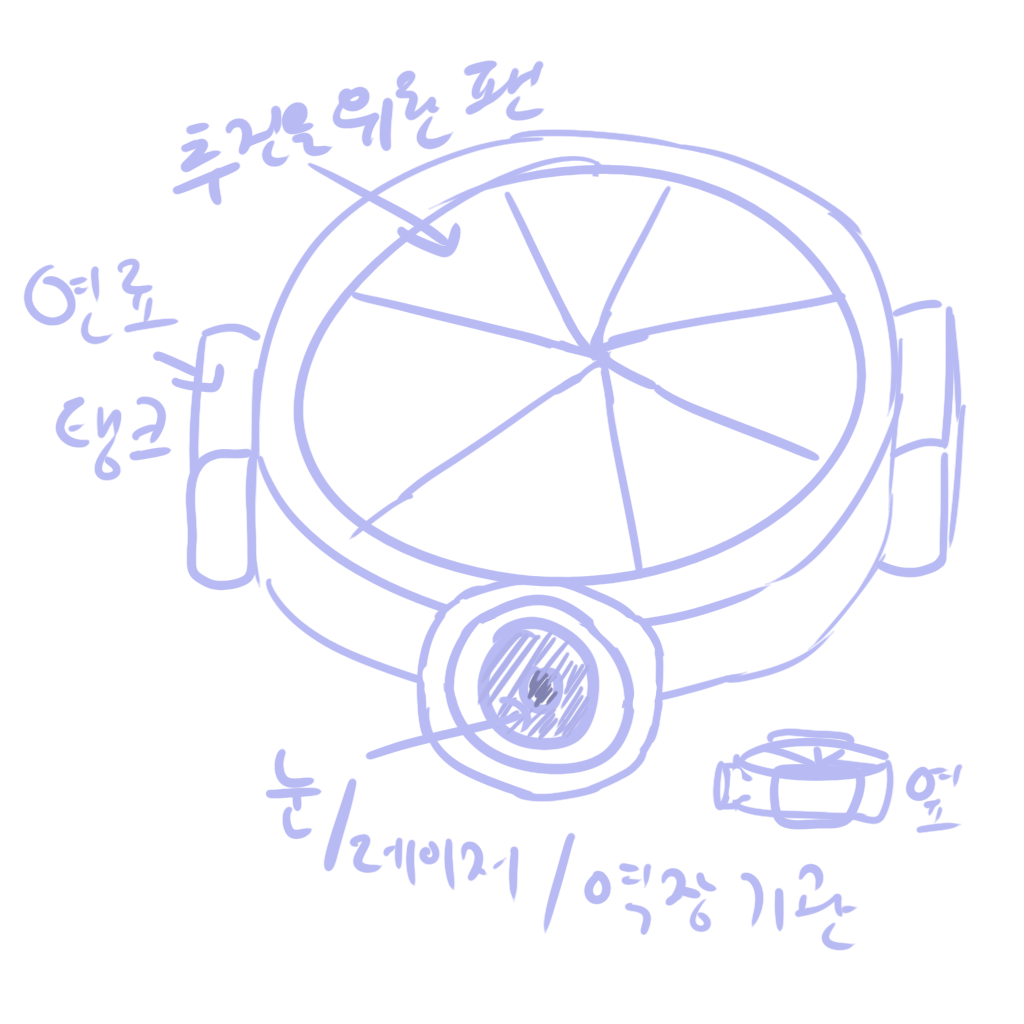 추진을 위한 팬
연료
탱크
눈/레이저/역장 기관
옆